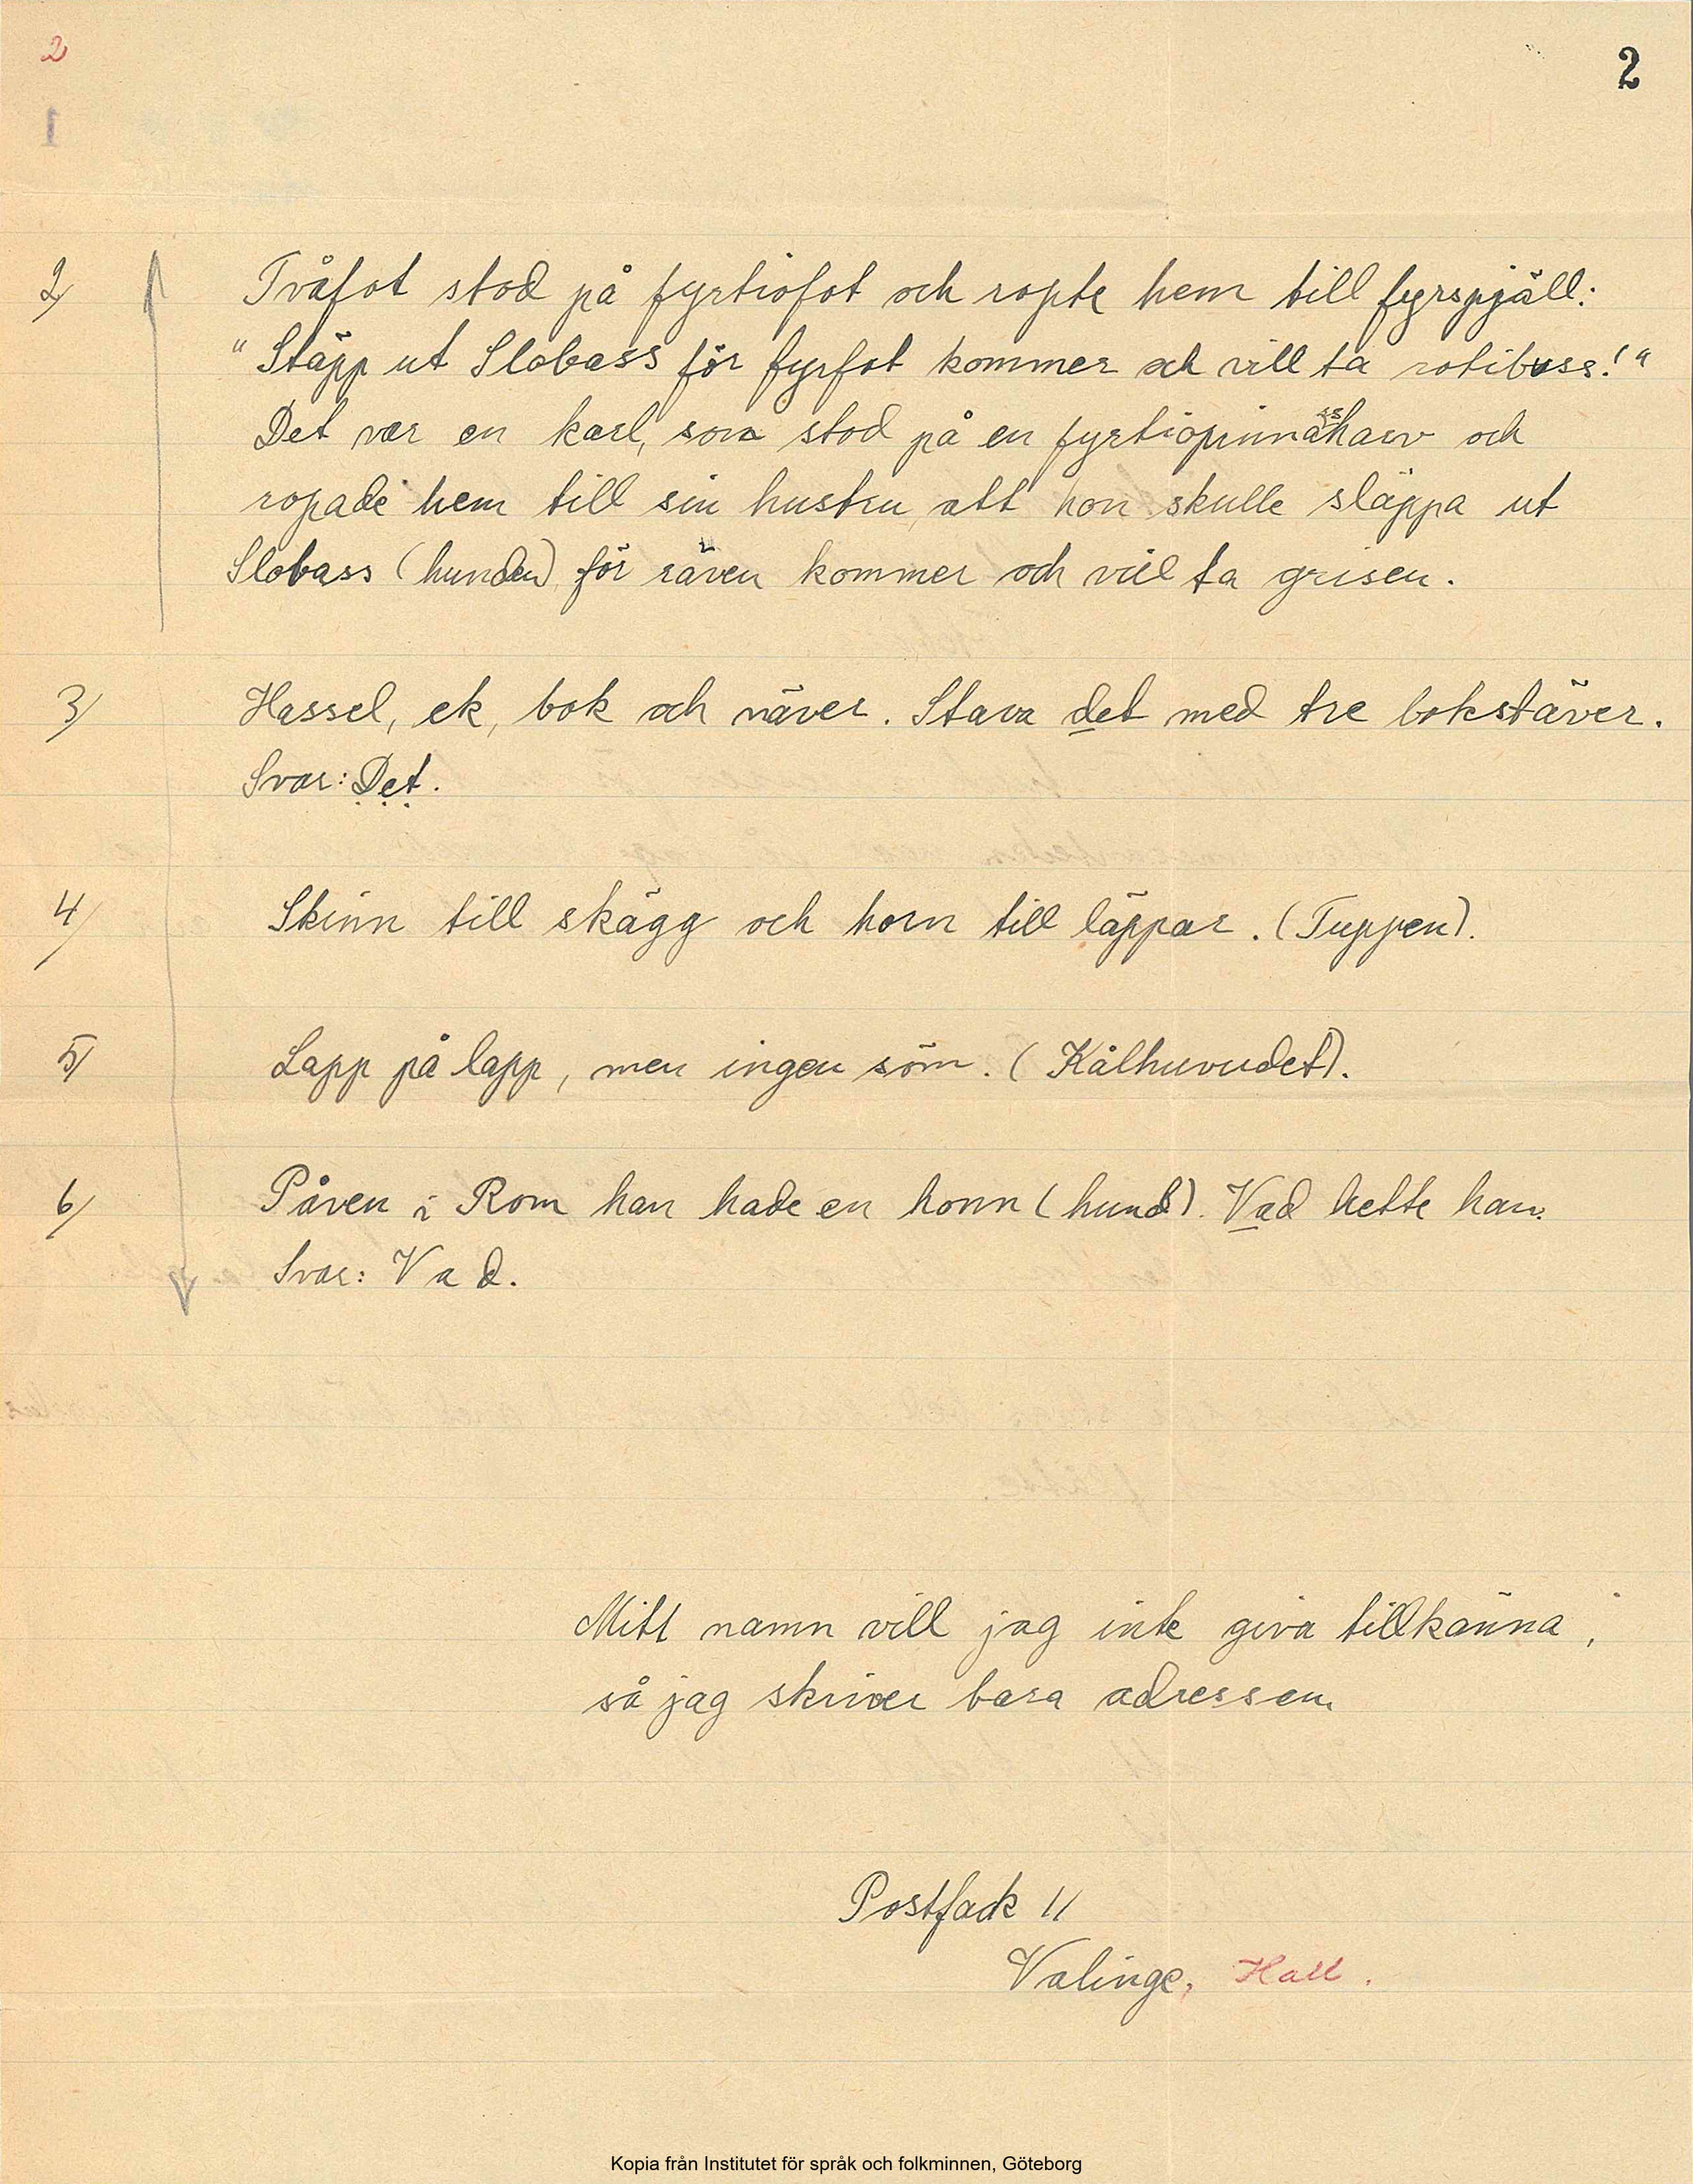 2
2
1
2/ Tvåfot stod på fyrtiofot och ropte hem till fyrspjäll:
"Släpp ut Slobass för fyrfot kommer och vill ta rotibuss!"
Det var en karl, som stod på en fyrtiopinnaßharv och
ropade hem till sin hustru, att hon skulle släppa ut
Slobass (hunden) för räven kommer och vill ta grisen.
3/ Hassel, ek, bok och näver. Stava det med tre bokstäver.
Svar: Det.
4/ Skinn till skägg och horn till läppar. (Tuppen).
5/ Lapp på lapp, men ingen söm. (Kålhuvudet).
6/ Påven i Rom han hade en honn (hund). Vad hette han.
Svar: Vad.
Mitt namn vill jag inte giva tillkänna,
så jag skriver bara adressen.
Postfack 11
Valinge, Hall.
Kopia från Institutet för språk och folkminnen, Göteborg